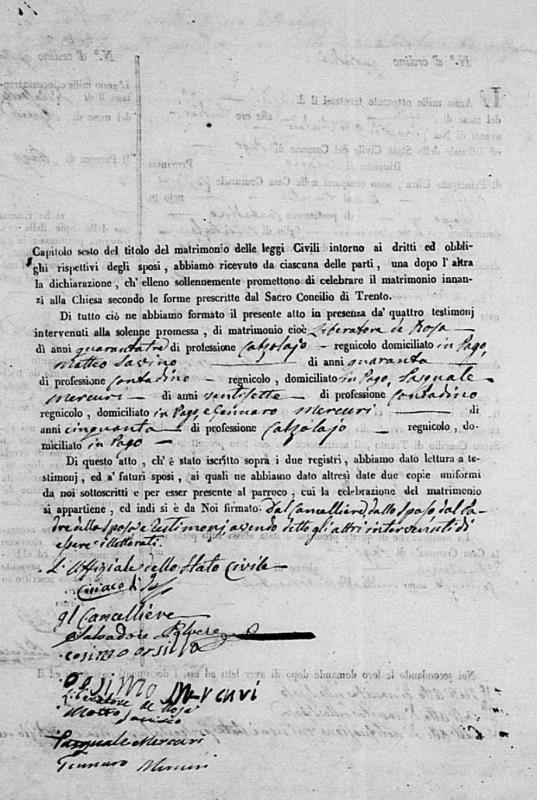 Capitolo sesto del titolo del matrimonio delle leggi Civili intorno ai dritti ed obbli-
ghi rispettivi degli sposi, abbiamo ricevuto da ciascuna delle parti, una dopo l'altra
la dichiarazione, ch'elleno sollennemente promettono di celebrare il matrimonio innan-
zi alla Chiesa secondo le forme prescritte dal Sacro Concilio di Trento.
Di tutto ciò ne abbiamo formato il presente atto in presenza da' quattro testimonj
intervenuti alla solenne promessa, di matrimonio cioè Liberatore de Rosa
di anni quarantatre di professione Calzolajo - regnicolo domiciliato in Pago,
Matteo Savino di anni quaranta
di professione Contadino - regnicolo, domiciliato in Pago, Pasquale
Mercuri - di anni ventisette - di professione Contadino
regnicolo, domiciliato in Pago, e Gennaro Mercuri - di
anni cinquanta - di professione Calzolajo - regnicolo, do-
miciliato in Pago -
Di questo atto, ch'è stato iscritto sopra i due registri, abbiamo dato lettura a te-
stimonj, ed a' futuri sposi, ai quali ne abbiamo dato altresì date due copie uniformi
da noi sottoscritti e per esser presente al parroco, cui la celebrazione del matrimonio
si appartiene, ed indi si è da Noi firmato: Dal Cancelliere, dallo sposo dal Pa-
dre dello sposo e testimonj avendo detto gli altri intervenuti di
essere illetterati.
L'Uffiziale dello Stato Civile
Ciriaco di
Il Cancelliere
Salvadore Polvere
Cosimo Orsillo
Cosimo Mercuri
Liberatore de Rosa
Matteo Savino
Pasquale Mercuri
Gennaro Mercuri